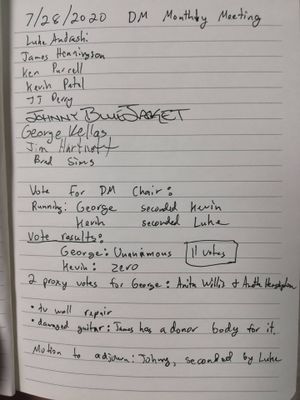 7/28/2020 DM Monthly Meeting
Luke Andraski
James Henningson
Ken Purcell
Kevin Patel
JJ Perry
JOHNNY BLUEJACKET
George Kellas
Jim Hartnett
Brad Sims
Vote for DM Chair:
Running: George seconded Kevin
Kevin seconded Luke
Vote results:
George: Unanimous 11 votes
Kevin: Zero
2 proxy votes for George: Anita Willis &
• tv wall repair
• damaged guitar: James has a donor body for it.
Motion to adjourn: Johnny, seconded by Luke